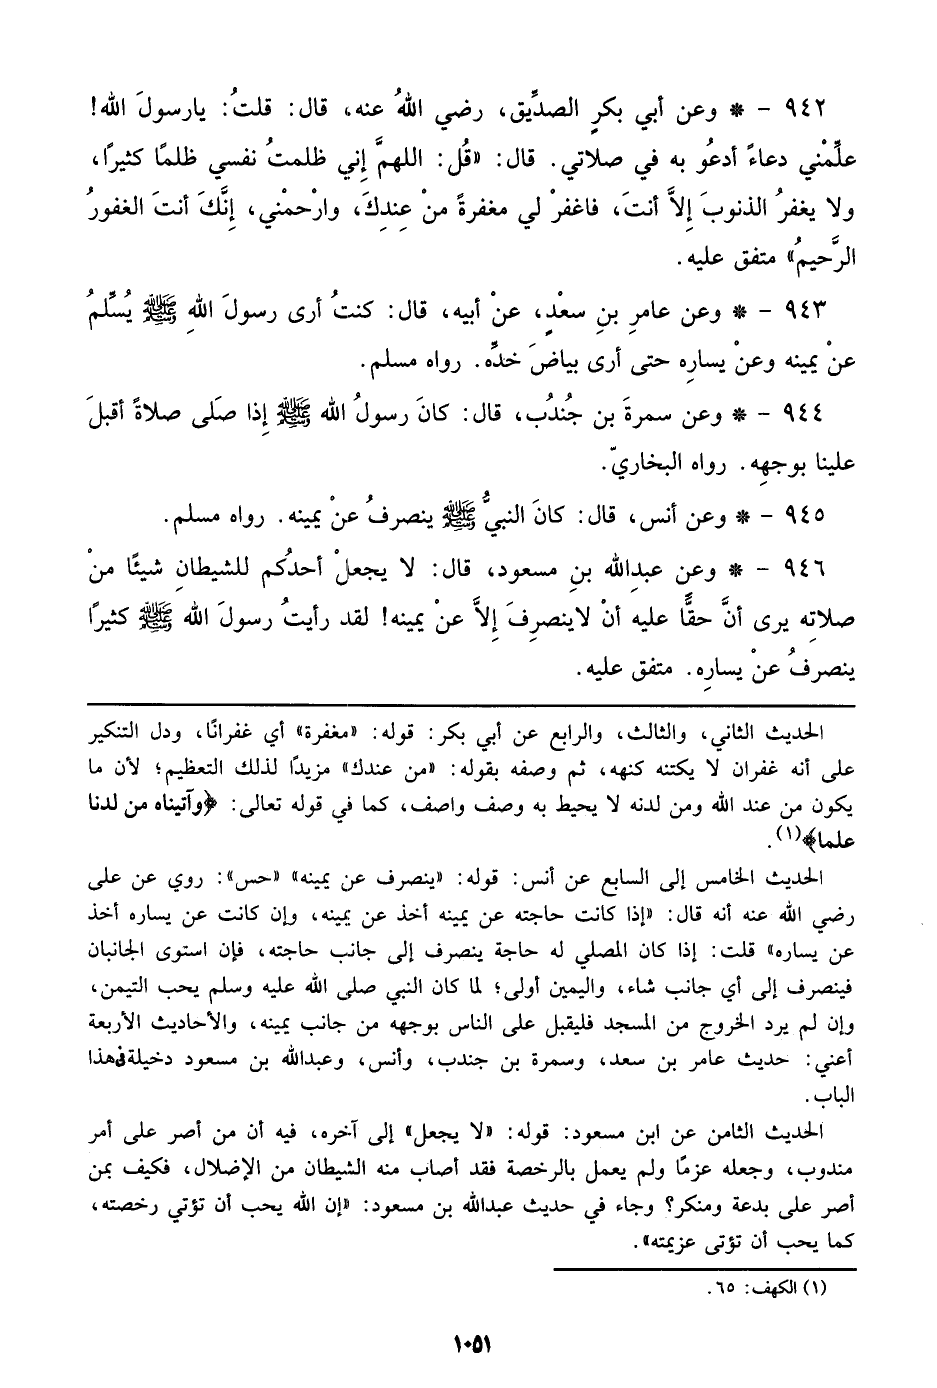 ٩٤٢ – * وعن أبي بكرٍ الصدِّيق، رضي اللهُ عنه، قال: قلتُ: يارسولَ الله!
علِّمْني دعاءً أدعُو به في صلاتي. قال: «قُل: اللهمَّ إني ظلمتُ نفسي ظلمًا كثيرًا،
ولا يغفرُ الذنوبَ إلاَّ أنتَ، فاغفرْ لي مغفرةً منْ عِندِكَ، وارْحمْني، إنَّكَ أنتَ الغفورُ
الرَّحيمُ» متفق عليه.
٩٤٣ – * وعن عامرِ بنِ سعْدٍ، عنْ أبيه، قال: كنتُ أرى رسولَ اللهِ ﷺ يُسلِّمُ
عنْ يمينه وعنْ يسارِه حتى أرى بياضَ خدِّه. رواه مسلم.
٩٤٤ – * وعن سمرةَ بن جُندُب، قال: كانَ رسولُ الله ﷺ إذا صَلى صلاةً أقبلَ
علينا بوجهِه. رواه البخاريّ.
٩٤٥ – * وعن أنس، قال: كانَ النبيُّ ﷺ ينصرفُ عنْ يمينه. رواه مسلم.
٩٤٦ – * وعن عبدِالله بنِ مسعود، قال: لا يجعلْ أحدُكم للشيطانِ شيئًا منْ
صلاتِه يرى أنَّ حقًّا عليه أنْ لاينصرِفَ إلاَّ عنْ يمينه! لقد رأيتُ رسولَ الله ﷺ كثيرًا
ينصرفُ عنْ يسارِه. متفق عليه.
الحديث الثاني، والثالث، والرابع عن أبي بكر: قوله: «مغفرة» أي غفرانًا، ودل التنكير
على أنه غفران لا يكتنه كنهه، ثم وصفه بقوله: «من عندك» مزيدًا لذلك التعظيم؛ لأن ما
يكون من عند الله ومن لدنه لا يحيط به وصف واصف، كما في قوله تعالى: ﴿وآتيناه من لدنا
علما﴾(١).
الحديث الخامس إلى السابع عن أنس: قوله: «ينصرف عن يمينه» «حس»: روي عن على
رضي الله عنه أنه قال: «إذا كانت حاجته عن يمينه أخذ عن يمينه، وإن كانت عن يساره أخذ
عن يساره» قلت: إذا كان المصلي له حاجة ينصرف إلى جانب حاجته، فإن استوى الجانبان
فينصرف إلى أي جانب شاء، واليمين أولى؛ لما كان النبي صلى الله عليه وسلم يحب التيمن،
وإن لم يرد الخروج من المسجد فليقبل على الناس بوجهه من جانب يمينه، والأحاديث الأربعة
أعني: حديث عامر بن سعد، وسمرة بن جندب، وأنس، وعبدالله بن مسعود دخيلة في هذا
الباب.
الحديث الثامن عن ابن مسعود: قوله: «لا يجعل» إلى آخره، فيه أن من أصر على أمر
مندوب، وجعله عزمًا ولم يعمل بالرخصة فقد أصاب منه الشيطان من الإضلال، فكيف بمن
أصر على بدعة ومنكر؟ وجاء في حديث عبدالله بن مسعود: «إن الله يحب أن تؤتي رخصته،
كما يحب أن تؤتى عزيمته».
(١) الكهف: ٦٥.
١٠٥١